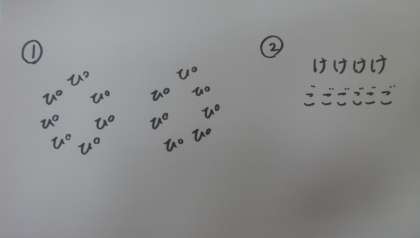 ①
ぴぴぴぴぴぴぴ
ぴぴぴぴぴぴぴ
②
けけけけ
ごごごごごご